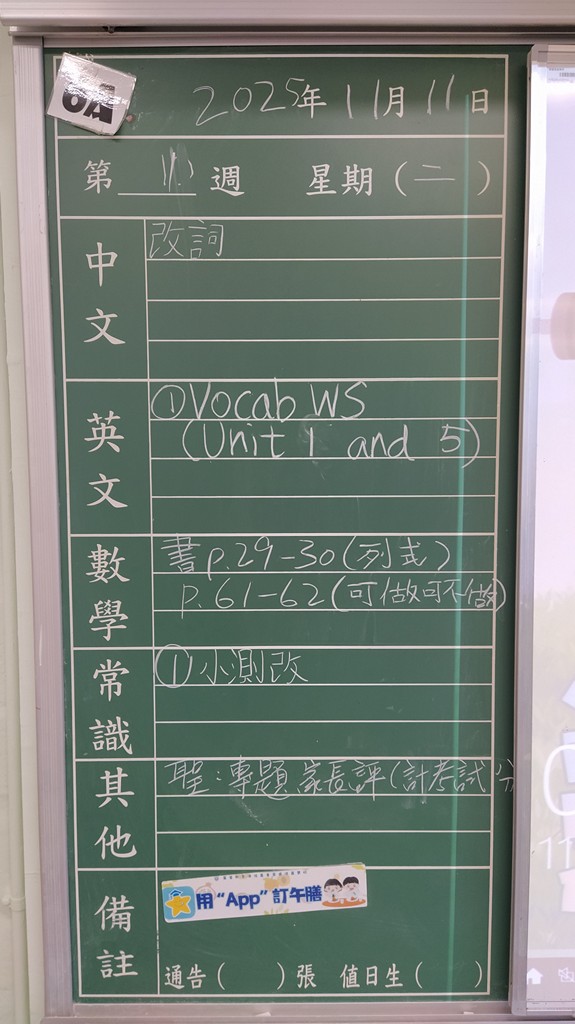 6A
2025年11月11日
第 11 週 星期(二)
中文
改詞
英文
①Vocab WS
(Unit 1 and 5)
數學
書p.29-30(列式)
p.61-62(可做可不做)
常識
①小測改
其他
聖:專題家長評(計考試分
備註
用“App”訂午膳
通告( )張 值日生( )